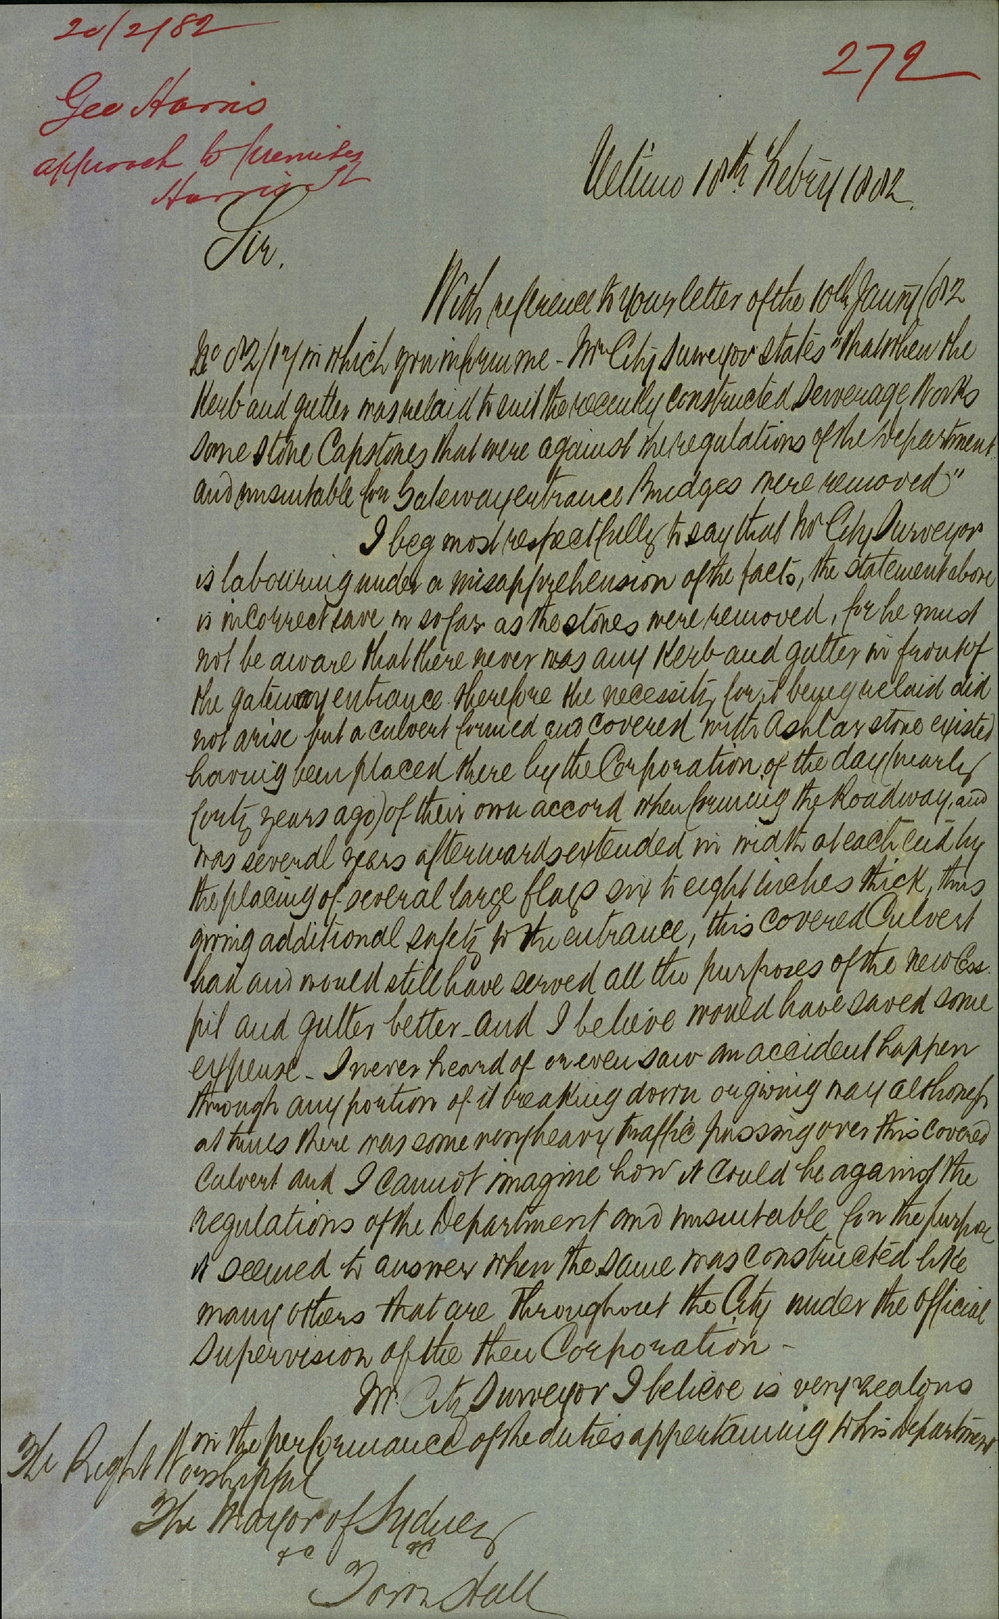 20/2/82
272
Geo Harris
approach to premises
Harris St
Ultimo 18th Febry 1882.
Sir,
With reference to your letter of the 10th Jany 1882
No 82/17 in which you inform me - Mr City Surveyor states "that when the
Kerb and gutter was relaid to suit the recently constructed Sewerage Works
some stone Capstones that were against the regulations of the Department
and unsuitable for Gateway entrance Bridges were removed"
I beg most respectfully to say that Mr City Surveyor
is labouring under a misapprehension of the facts, the statement above
is incorrect save in so far as the stones were removed, for he must
not be aware that there never was any Kerb and gutter in front of
the gateway entrance therefore the necessity for it being relaid did
not arise but a culvert formed and covered with Ashlar stone existed
having been placed there by the Corporation of the day (nearly
forty years ago) of their own accord when forming the Roadway, and
was several years afterwards extended in width at each end by
the placing of several large flags six to eight inches thick, thus
giving additional safety to the entrance, this covered Culvert
had and would still have served all the purposes of the new Cess
pit and gutter better - and I believe would have saved some
expense - I never heard of or even saw an accident happen
through any portion of it breaking down or giving way although
at times there was some very heavy traffic passing over this covered
Culvert and I cannot imagine how it could be against the
regulations of the Department and unsuitable for the purpose
it seemed to answer when the same was constructed like
many others that are throughout the City under the official
Supervision of the then Corporation -
Mr City Surveyor I believe is very zealous
in the performance of the duties appertaining to his Department
The Right Worshipful
The Mayor of Sydney
&c &c
Town Hall